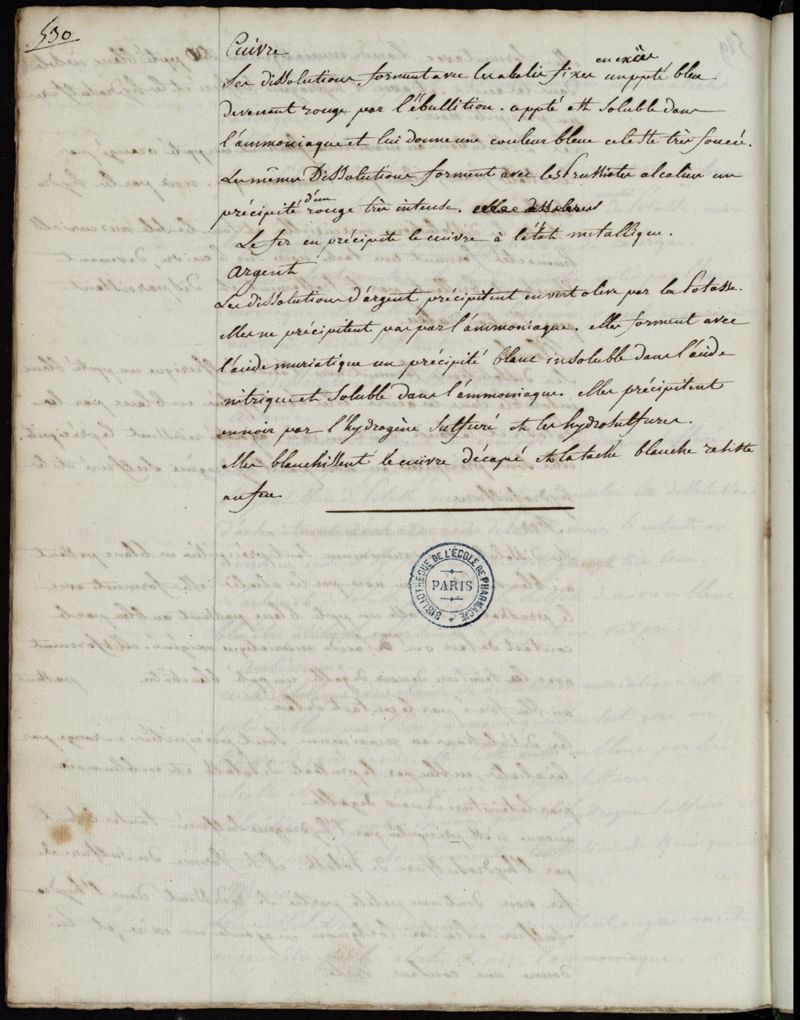 530
Cuivre
Ses dissolutions forment avec les alcalis fixes en excès un ppté bleu
devenant rouge par l'ébullition. ce ppté est soluble dans
l'ammoniaque et lui donne une couleur bleue celeste très foncée.
Les mêmes Dissolutions forment avec les Prussiates alcalins un
précipité d'un rouge très intense.
Le fer en précipite le cuivre à l'état metallique.
argent
Les dissolutions d'argent précipitent en vert olive par la Potasse.
elles ne précipitent pas par l'ammoniaque. elles forment avec
l'acide muriatique un précipité blanc insoluble dans l'acide
nitrique et soluble dans l'ammoniaque. elles précipitent
en noir par l'hydrogène sulfuré et les hydrosulfures.
elles blanchissent le cuivre décapé et la tache blanche résiste
au feu
BIBLIOTHÈQUE DE L'ÉCOLE DE PHARMACIE
PARIS